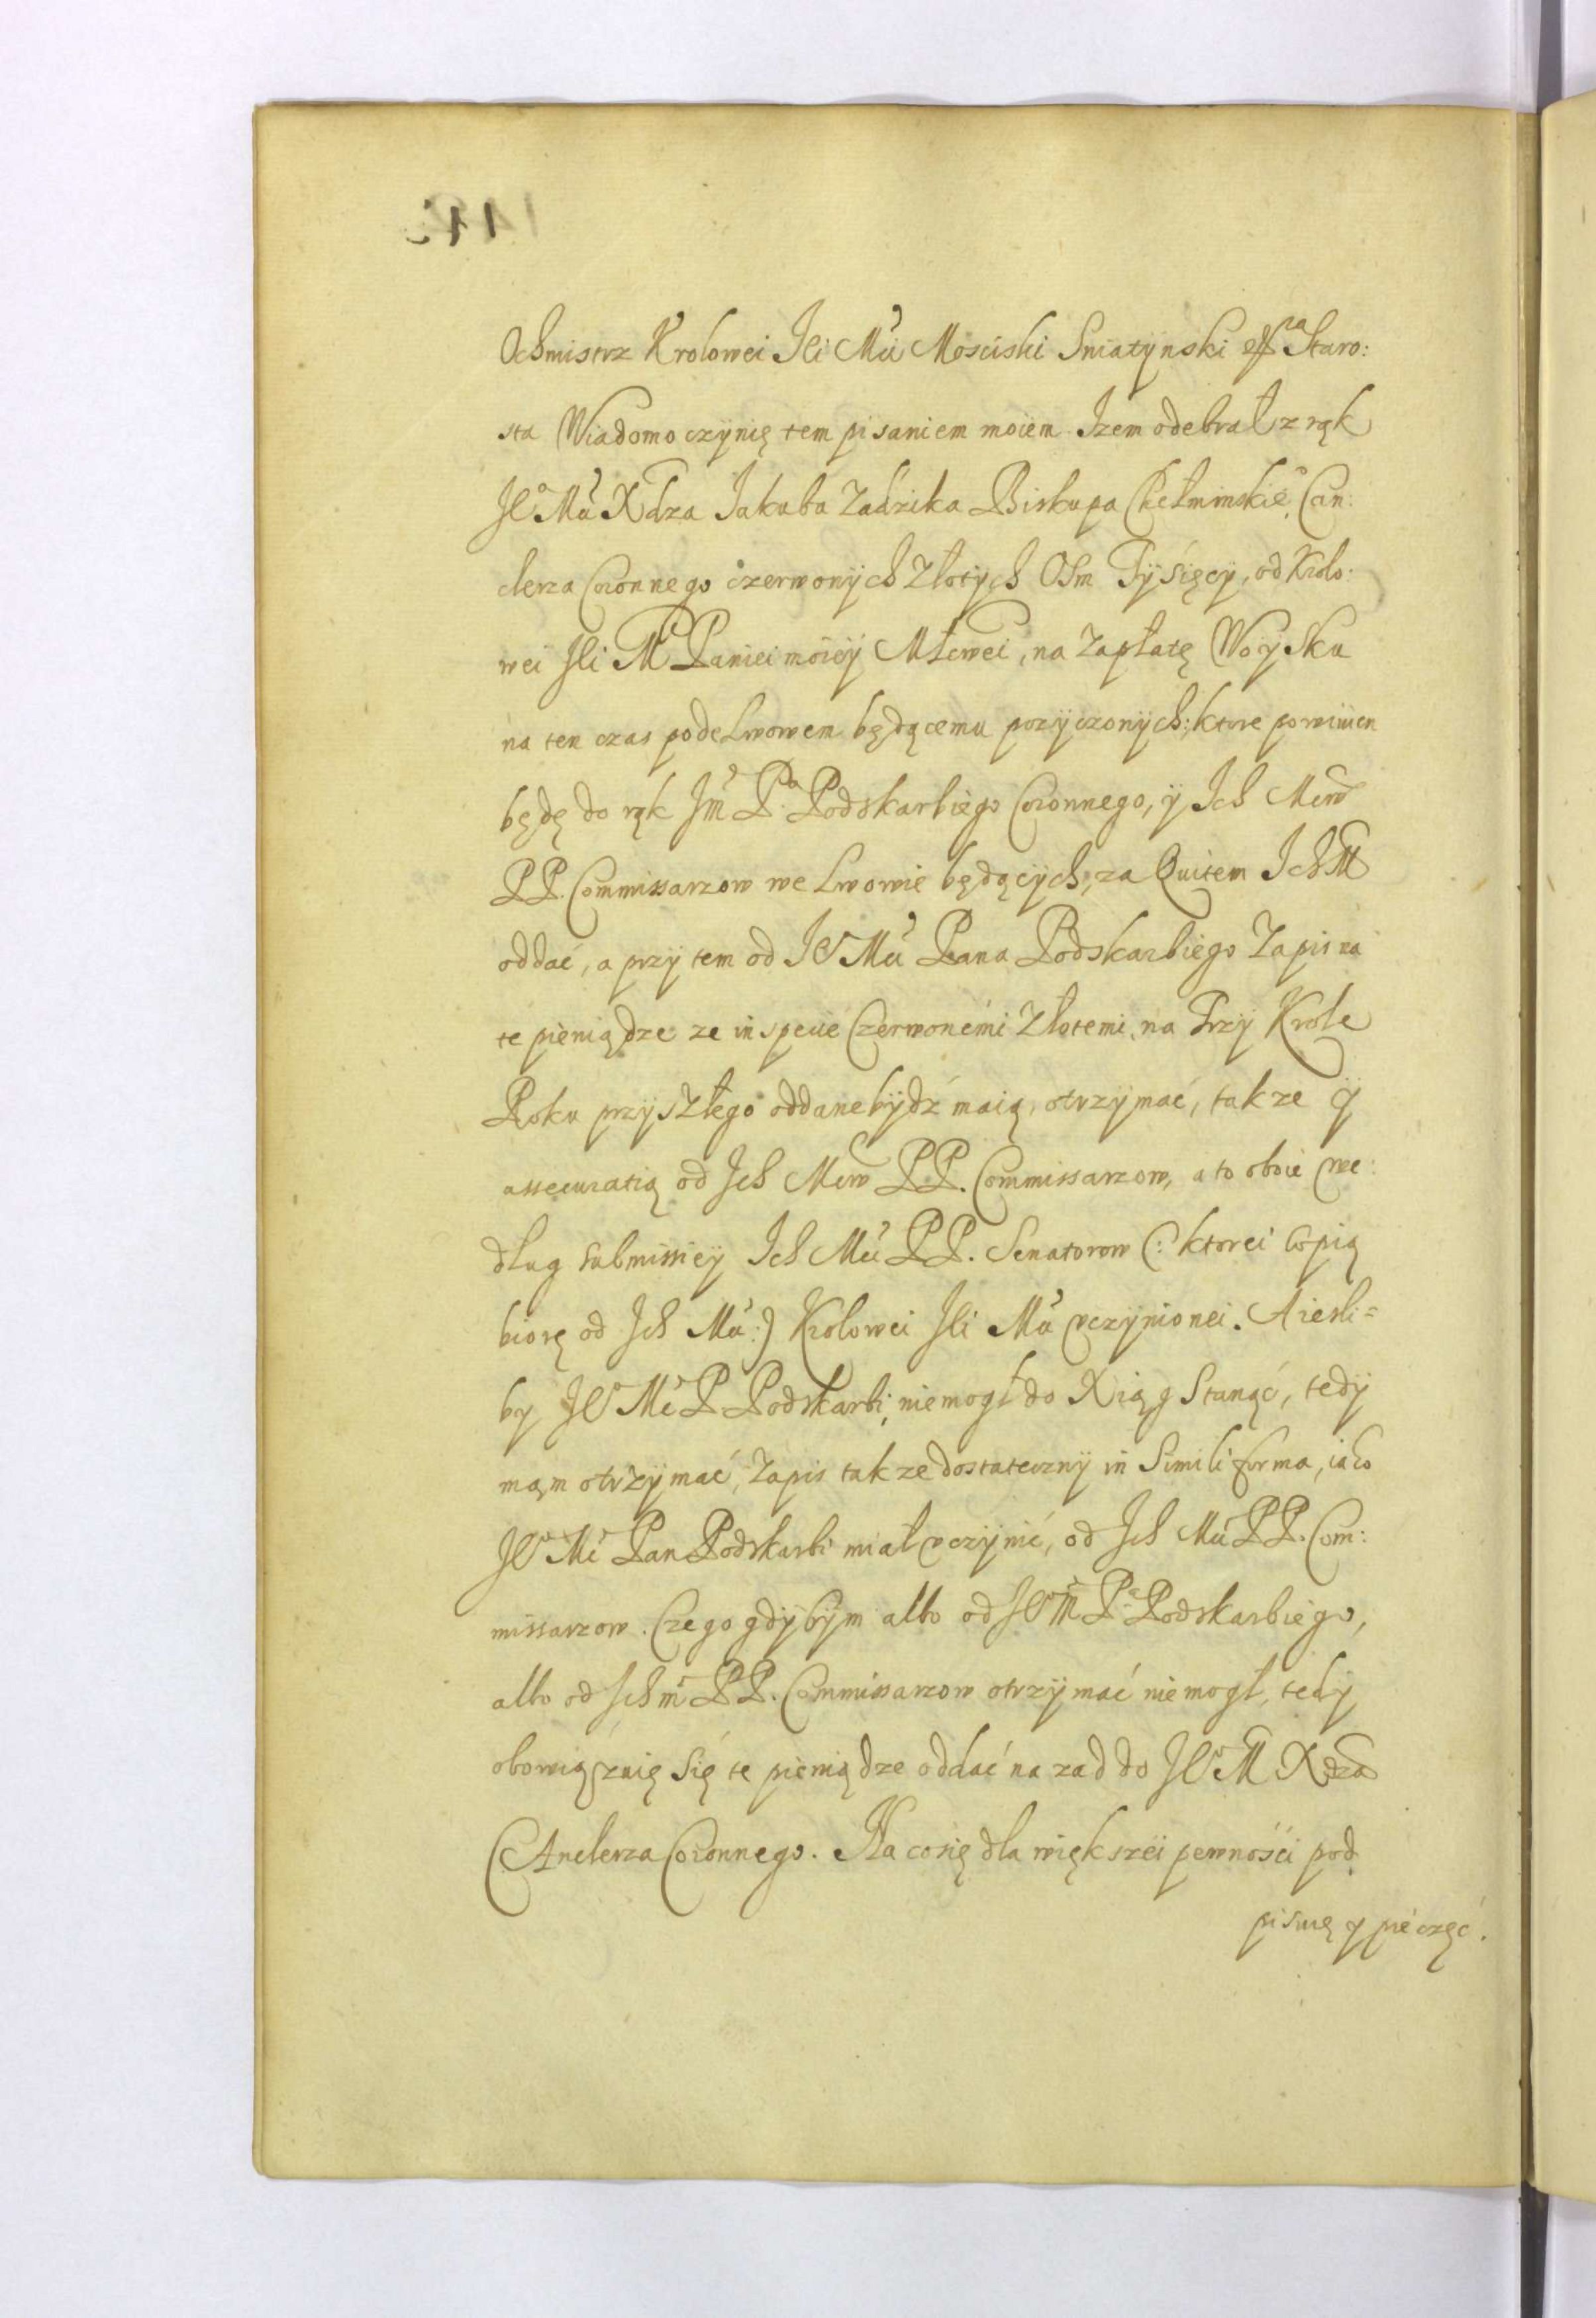 Ochmistrz Krolowei JEi Mći Mosciski Sniatynski etc̃a Staro:
sta Wiadomo czÿnię tem pisaniem moiem Jzem odebrał z rąk
JEo Mći Xdza Jakuba Zadzika Biskupa Chełminskieo, Can:
clerza Coronnego czerwonÿch Złotÿch Osm Tÿsięcÿ, od Krolo:
wei JEi M Paniei moieÿ Młcwei, na Zapłatę Woÿsku
na ten czas pode Lwowem będącemu pozÿczonÿch: ktore powinien
będę do rąk Jm̃ Pa Podskarbiego Coronnego, ÿ Ich Mciw
PP. Commissarzow we Lwowie będącÿch, za Quitem Ich M
oddać, a przÿ tem od JEo Mći Pana Podskarbiego Zapis na
te pieniądze ze in specie Czerwonemi Złotemi, na Trzÿ Krole
Roku przÿszłego oddane bÿdź maią, otrzÿmać, takze ÿ
assecuratią od Ich Mciw PP. Commissarzow, a to oboie we:
dług submissieÿ Ich Mći PP. Senatorow (: ktorei copią
biorę od Ich Mći :) Krolowei JEi Mći vczÿnionei. A iesli=
by JEo Mć P Podskarbi, niemogł do Xiąg Stanąć, tedÿ
mąm otrzÿmać, Zapis takze dostatecznÿ in Simili forma, iako
JEo Mć Pan Podskarbi miał vczÿnić, od Ich Mći PP. Com:
missarzow. Czego gdÿbÿm albo od JEo M Pa Podskarbiego,
albo od Ich m PP. Commissarzow otrzÿmać niemogł, tedÿ
obowiązuię Się te pieniądze oddać na zad do JEo M Xdza
CAnclerza Coronnego. Na co się dla większei pewności pod
pisuię y pieczęć.